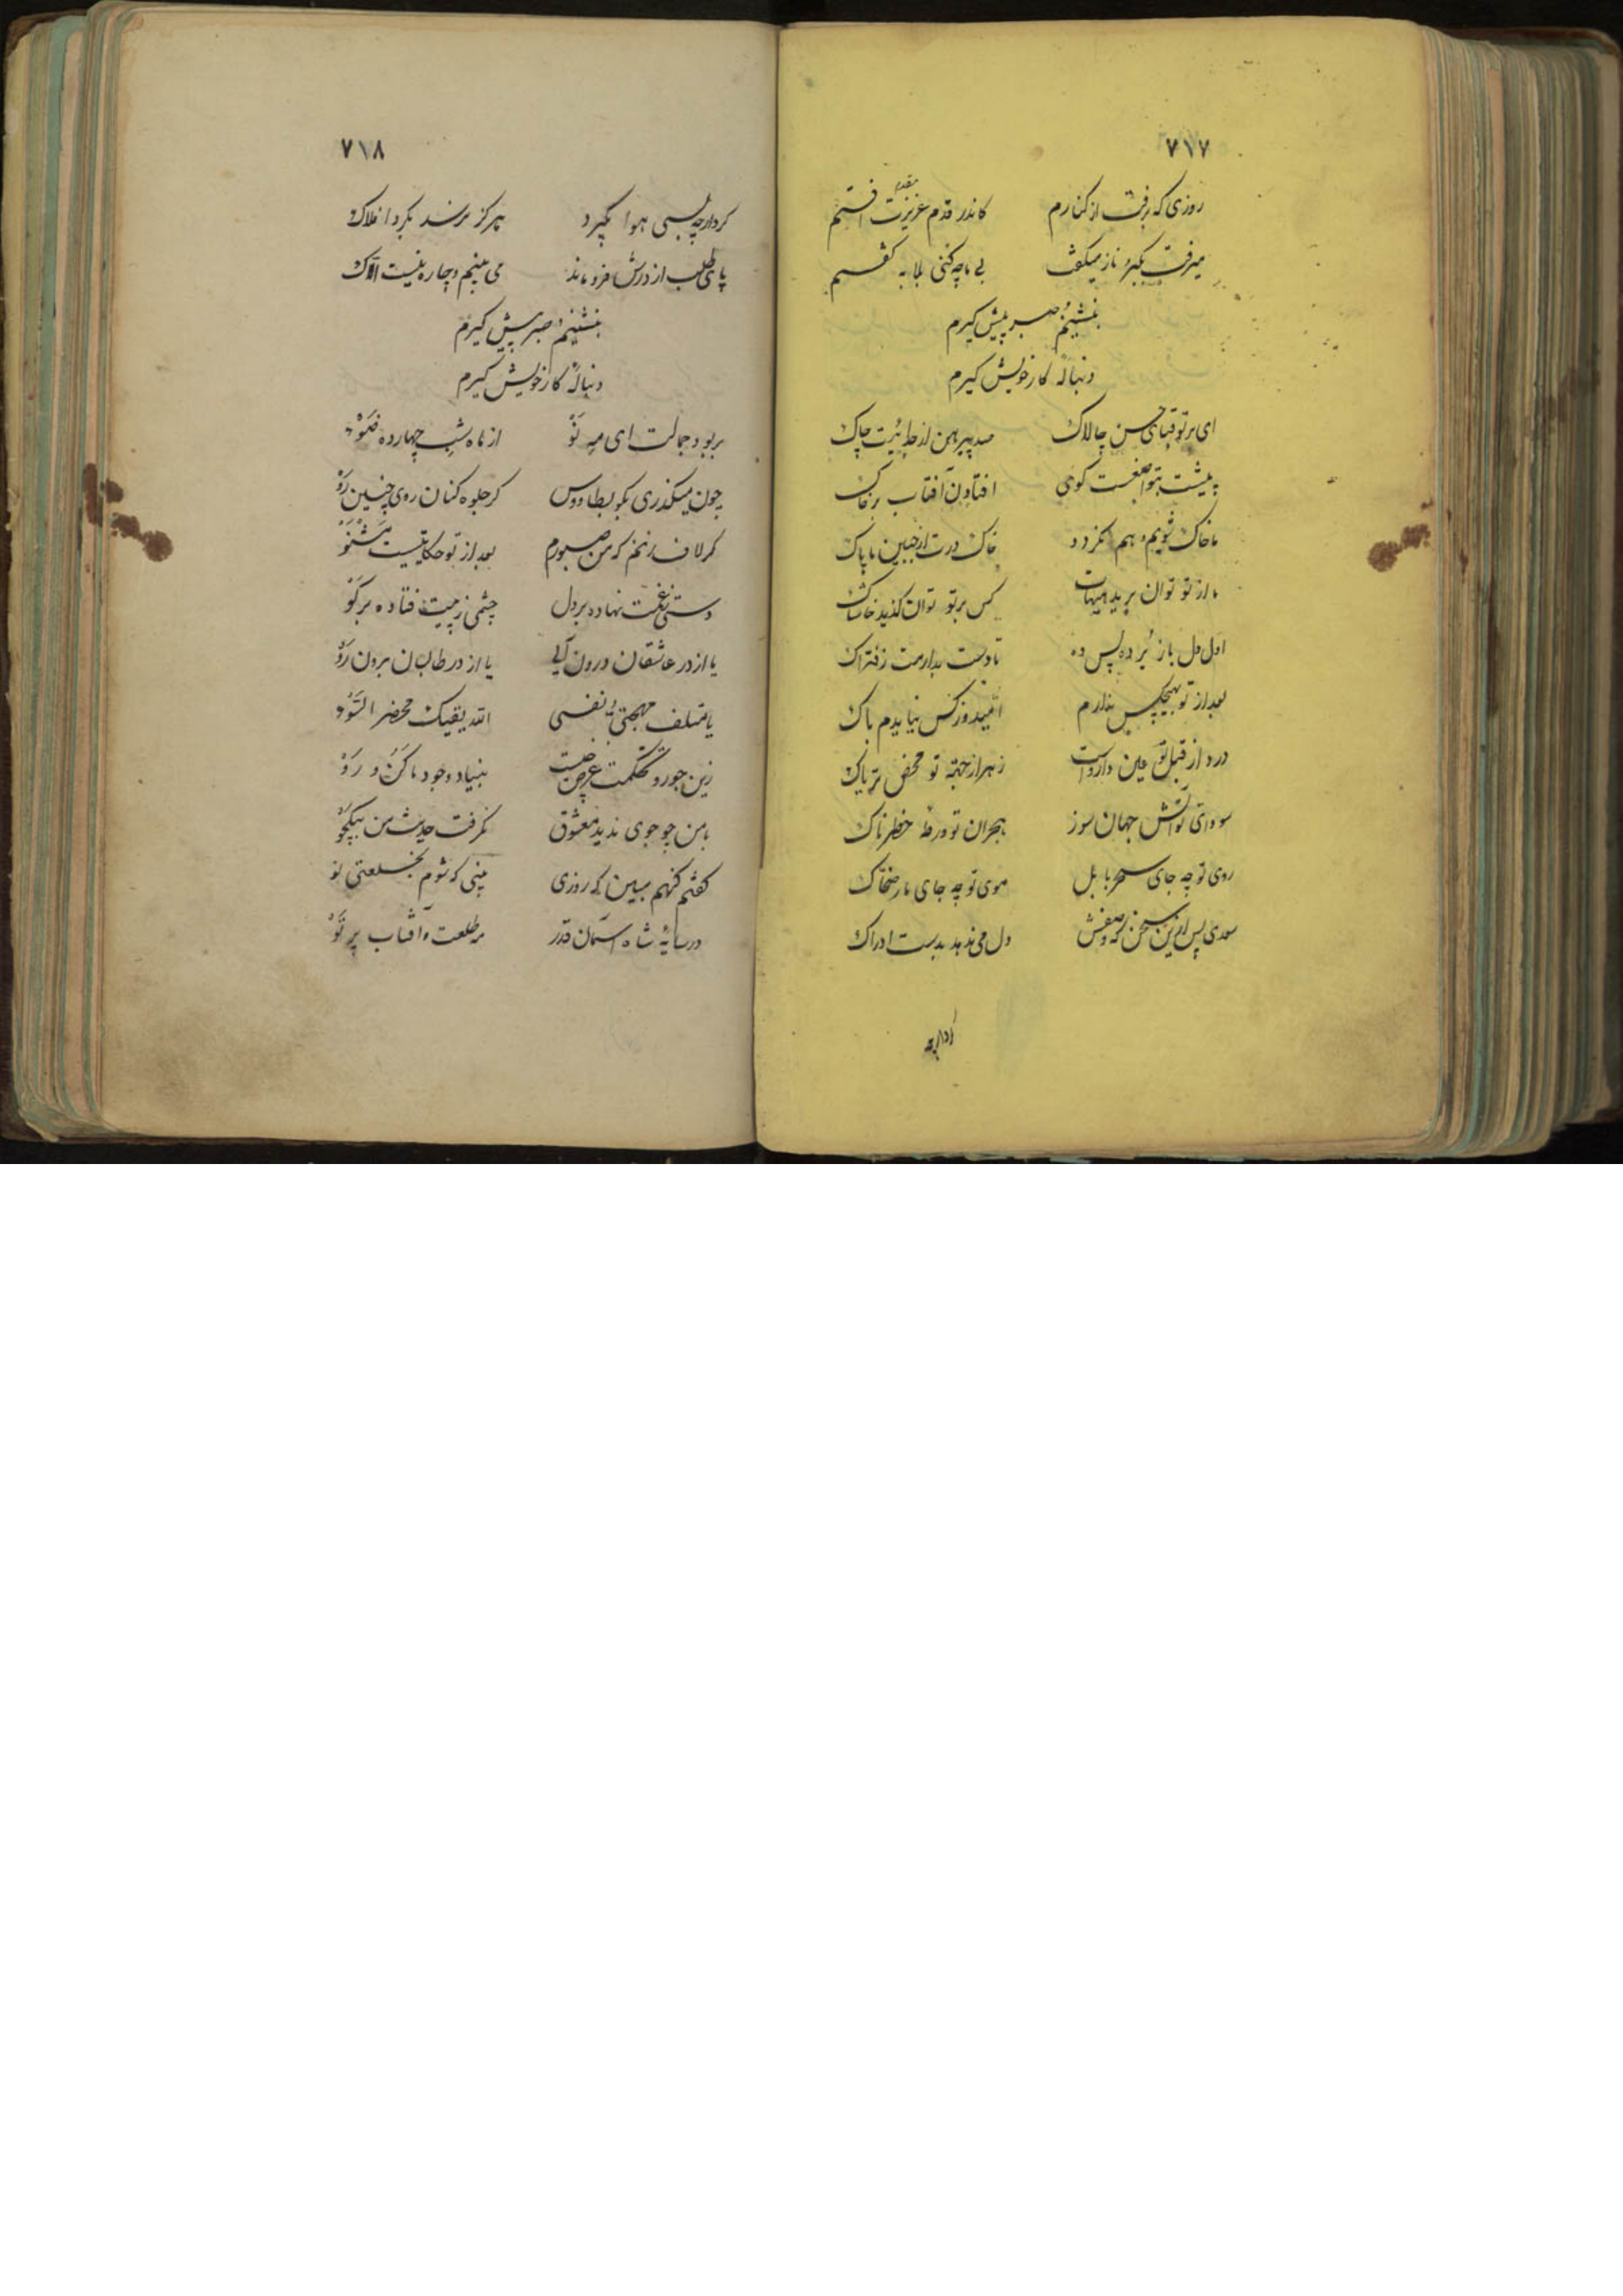 ۷۱۷
روزی که برفت از کنارم کاندر قدم عزیزت افتم
مقدم
میرفت بکبر و ناز میگفت بی ما چه کنی بلابه گفتم
بنشینم و صبر پیش گیرم
دنبالهٔ کار خویش گیرم
ای بر تو قبای حسن چالاک صد پیرهن از جدائیت چاک
پیشت بتواضعست گوئی افتادن آفتاب بر خاک
ما خاک شویم و هم نگردد خاک درت از جبین ما پاک
ما از تو توان برید هیهات کس بر تو توان گذید خاشاک
اول دل باز برده پس ده تا دست بدارمت ز فتراک
بعد از تو بهیچکس ندارم امید و ز کس نیایدم باک
درد از قبل تو عین داروست زهر از حقهٔ تو محض تریاک
سودای تو آتش جهان سوز هجران تو ورطهٔ خطرناک
روی تو چه جای سحر بابل موی تو چه جای مار ضحاک
سعدی پس ازین سخن که وصفش دل می‌ندهد بدست ادراک
۷۱۸
گرد ارچه بسی هوا بگیرد هرگز نرسد بگرد افلاک
پای طلب از درش فرو ماند می بینم و چاره نیست الاک
بنشینم و صبر پیش گیرم
دنبالهٔ کار خویش گیرم
بربود جمالت ای مه نَوْ از ماه شب چهارده ضَوْ
چون میگذری بگو بطاووس گر جلوه کنان روی چنین رَوْ
گر لاف زنم که من صبورم بعد از تو حکایتیست مَشْنَوْ
دستی ز غمت نهاده بر دل چشمی ز پیت فتاده بر گَوْ
یا از در عاشقان درون آی یا از در طالبان برون رَوْ
یا متلف مهجتی و نفسی الله یقیک محضر السَّوْء
زین جور و تحکمت غرض چیست بنیاد وجود ما کَن و رَوْ
با من چو جوی ندید معشوق نگرفت حدیث من بیکجَوْ
گفتم کنهم مبین که روزی بینی که شوم بخلعتی نو
در سایهٔ شاه آسمان قدر مه طلعت و آفتاب پرتَوْ